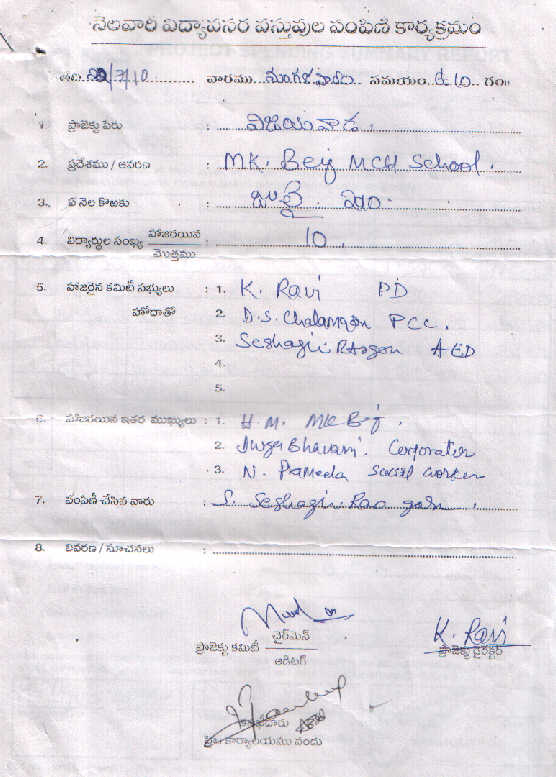 నెలవారి విద్యావసర వస్తువుల పంపిణి కార్యక్రమం
తేది. /7/10 వారము మంగళవారం సమయం 8-10 గం॥
1. ప్రాజెక్టు పేరు : విజయవాడ.
2. ప్రదేశము / ఆవరణ : MK. Beig MCH School.
3. ఏ నెల కొఱకు : జులై. 2010.
4. విద్యార్థుల సంఖ్య హాజరయిన : 10.
మొత్తము
5. హాజరైన కమిటీ సభ్యులు : 1. K. Ravi PD
హోదాతో 2. D.S. Chalam PCC.
3. Seshagiri Rao garu AED
4.
5.
6. హాజరయిన ఇతర ముఖ్యులు : 1. H.M. MK Bg.
2. Durga Bhavani. Corporator
3. N. Prameela social worker
7. పంపిణీ చేసిన వారు : S. Seshagiri Rao garu.
8. వివరణ / సూచనలు :
ప్రాజెక్టు కమిటీ చైర్‌మెన్
ఆడిటర్
K. Ravi
ప్రాజెక్టు డైరెక్టర్
కార్యాలయము నందు